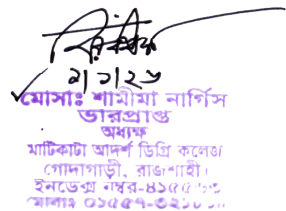 ১/১/২৬
মোসাঃ শামীমা নার্গিস
ভারপ্রাপ্ত
অধ্যক্ষ
মাটিকাটা আদর্শ ডিগ্রি কলেজ
গোদাগাড়ী, রাজশাহী।
ইনডেক্স নম্বর-৪১৫৫
মোবাঃ ০১৫৫৭-৩২